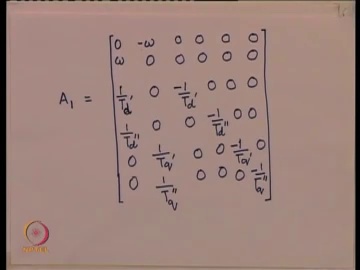 0 -ω 0 0 0 0
ω 0 0 0 0 0
A₁ = 1/T_d' 0 -1/T_d' 0 0 0
1/T_d'' 0 0 -1/T_d'' 0 0
0 1/T_q' 0 0 -1/T_q' 0
0 1/T_q'' 0 0 0 -1/T_q''
NPTEL